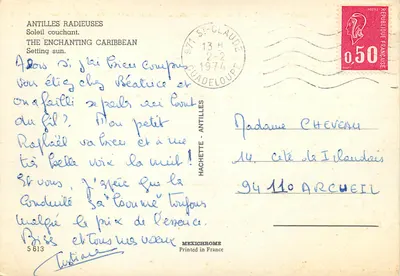 ANTILLES RADIEUSES
Soleil couchant.
THE ENCHANTING CARIBBEAN
Setting sun.
Alors si j'ai bien compris
vous étiez chez Béatrice et
on a failli se parler au bout
du fil?, Mon petit
Raphaël va bien et a une
très belle voix la nuit!
Et vous, j'espère que la
conduite ça "tourne" toujours
malgré le prix de l'essence.
Bises et tous mes vœux
5 613
MEXICHROME
Printed in France
HACHETTE - ANTILLES
971 ST CLAUDE
13 H
1974
GUADELOUPE
REPUBLIQUE FRANÇAISE
0,50
Madame CHEVEAU
14, cité de Irlandais
94 110 ARCUEIL